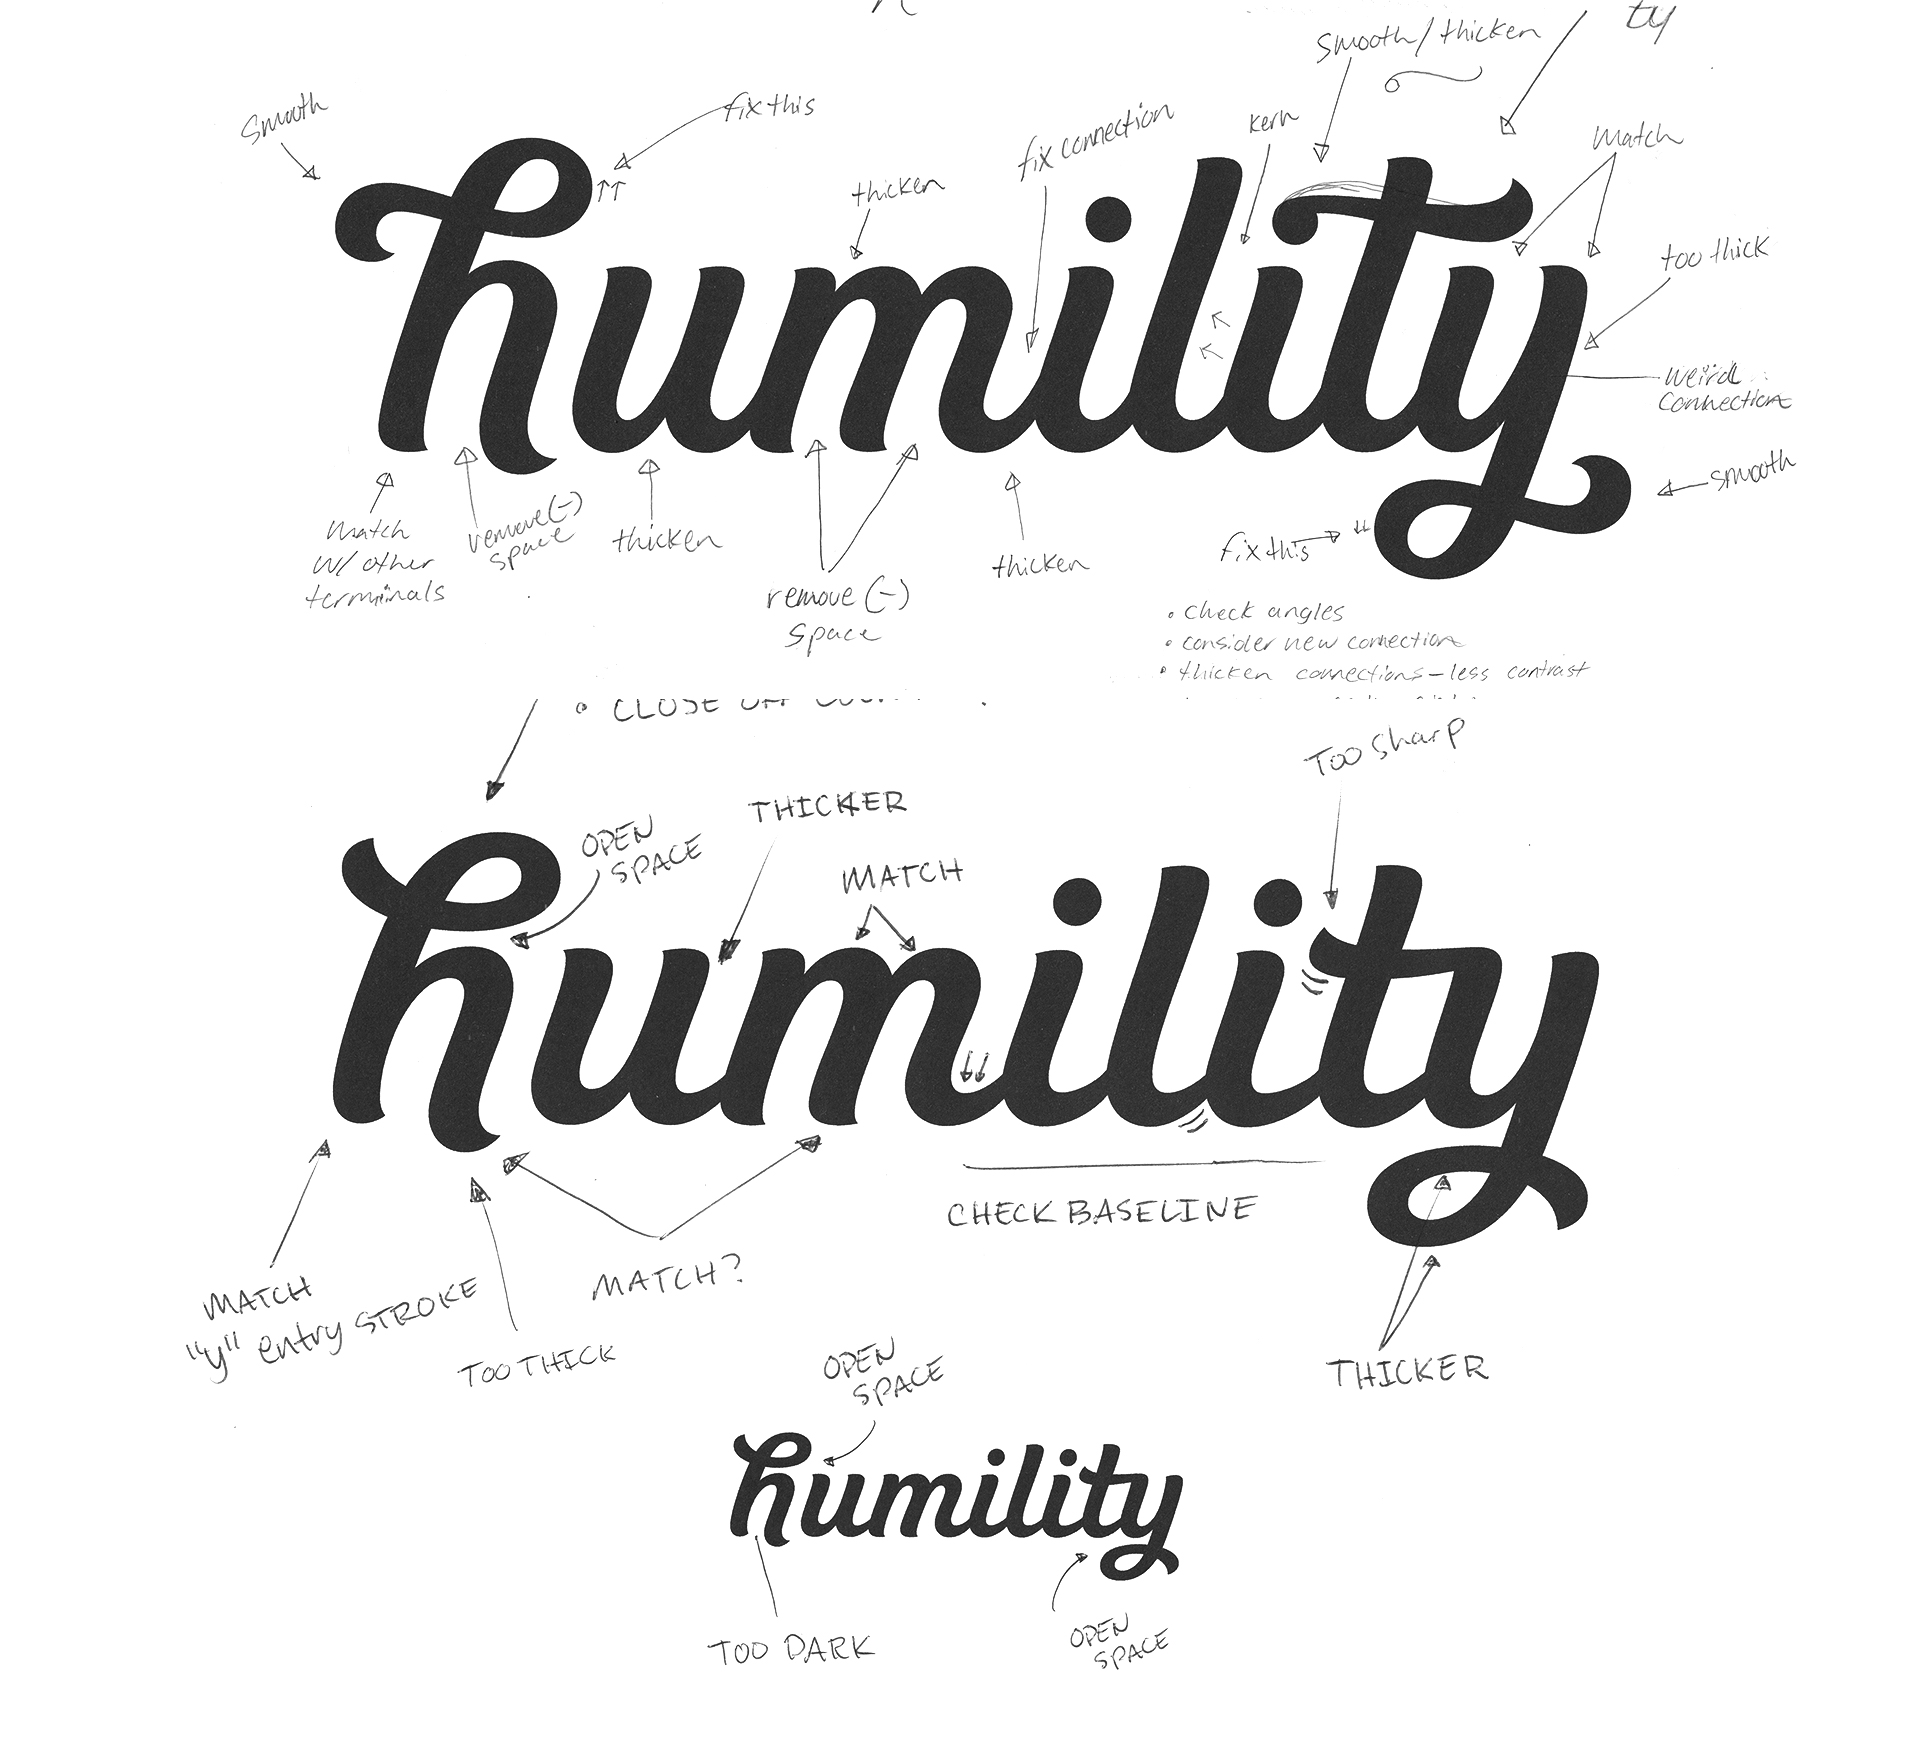 ty
smooth/thicken
smooth
fix this
fix connection
kern
match
thicken
humility
too thick
weird
connection
smooth
match
w/ other
terminals
remove (-)
space
thicken
remove (-)
space
thicken
fix this
• check angles
• consider new connection
• thicken connections – less contrast
• CLOSE OFF
TOO SHARP
THICKER
OPEN
SPACE
MATCH
humility
CHECK BASELINE
MATCH
"y" entry STROKE
MATCH?
TOO THICK
THICKER
OPEN
SPACE
humility
TOO DARK
OPEN
SPACE